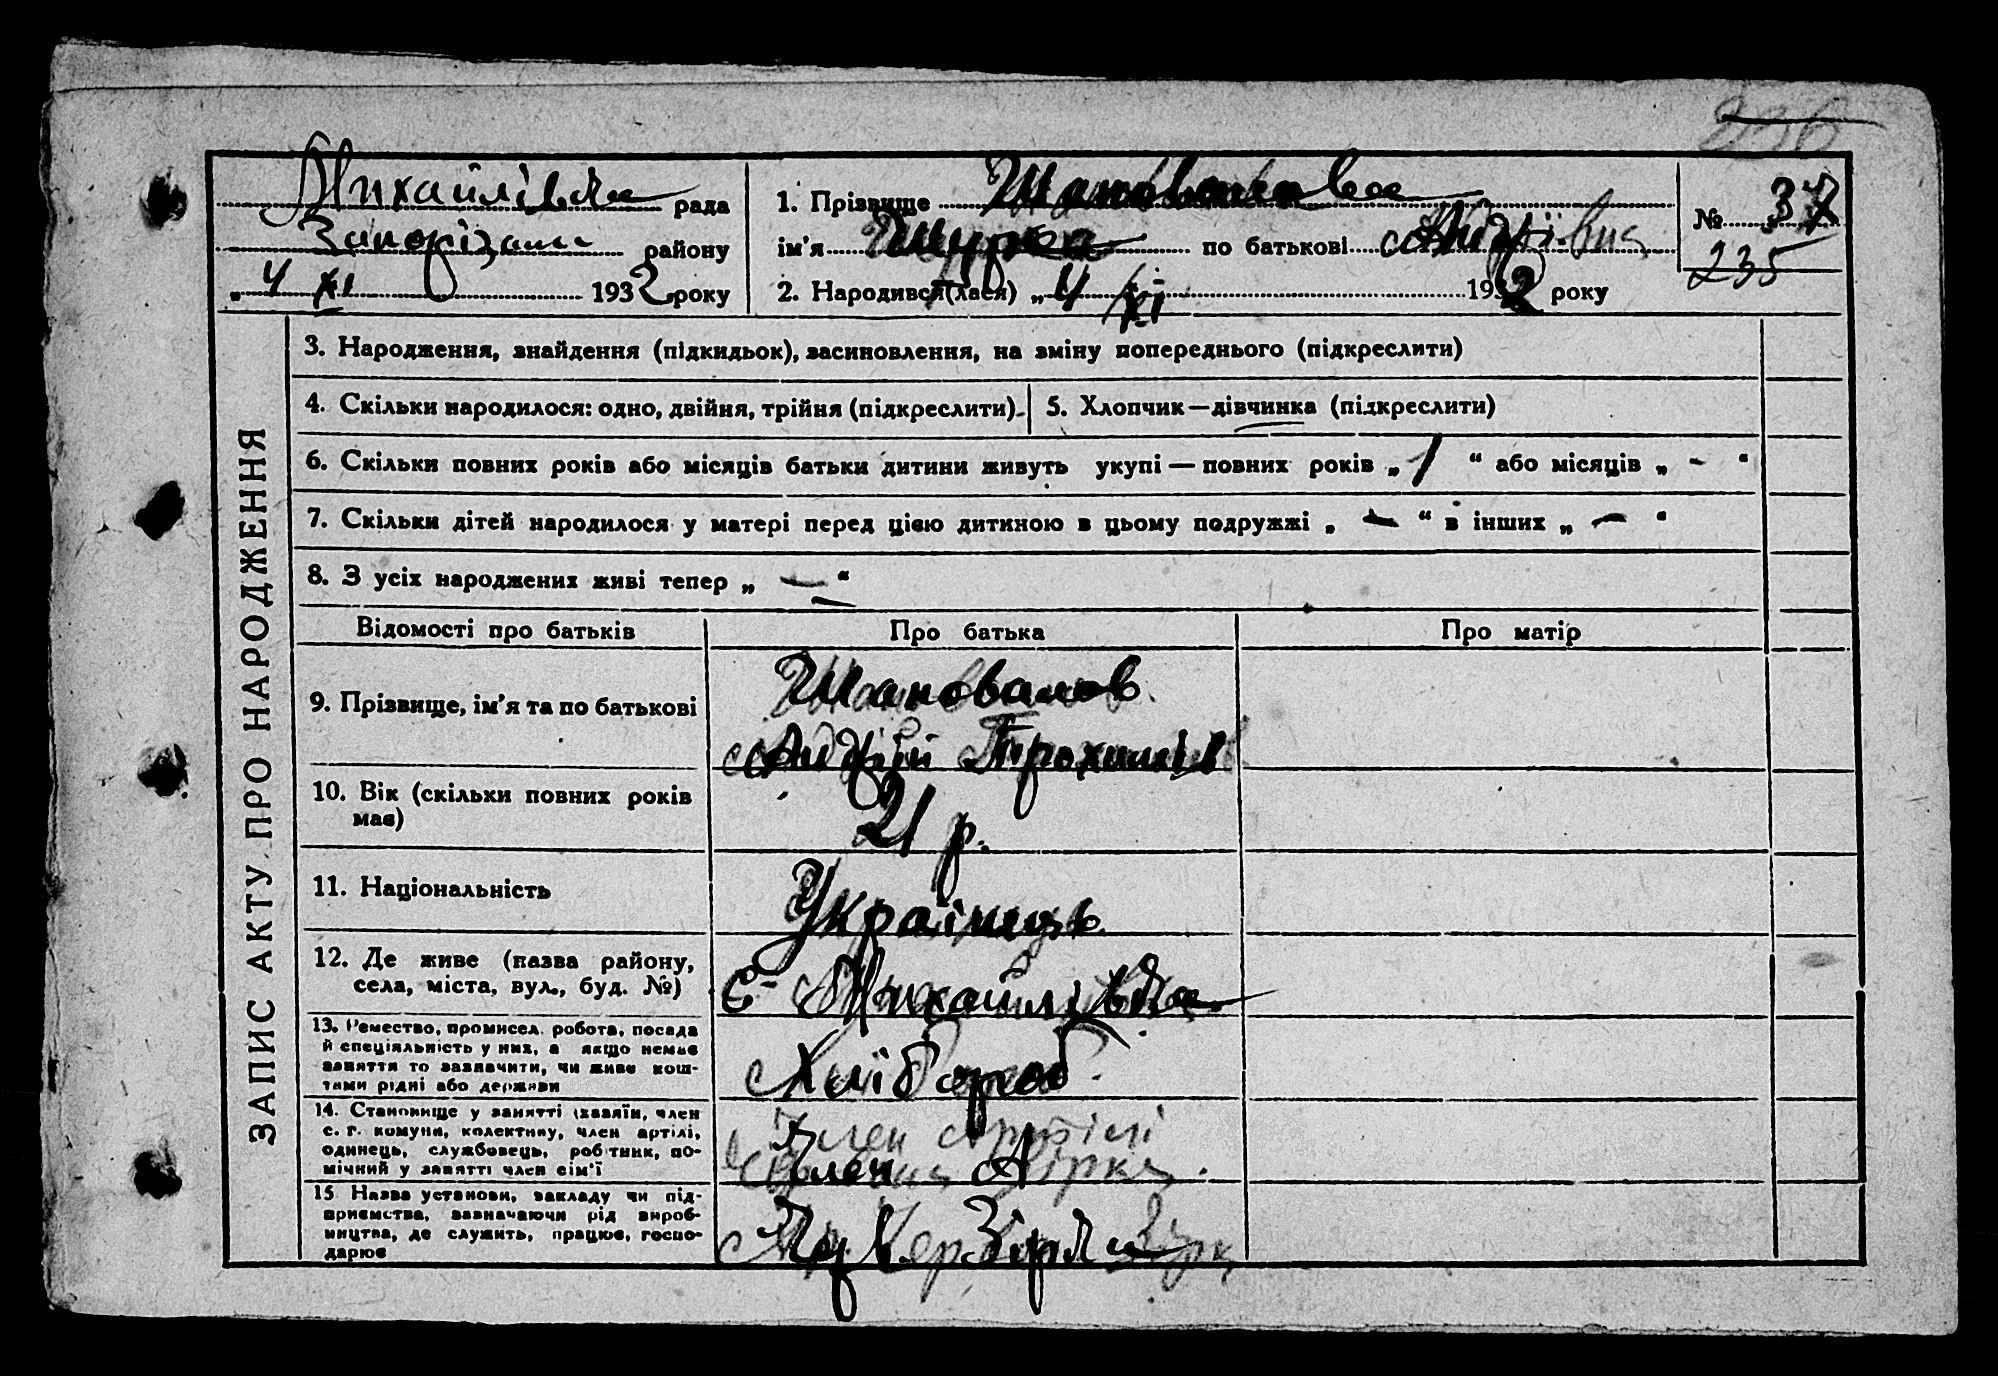 236
Михайлівка рада
Запорізький району
„ 4 XI 1932 року
1. Прізвище Шаповалова
ім'я Шура по батькові Андріївна
2. Народився(лася) „ 4 XI 1932 року
№ 37
235
ЗАПИС АКТУ ПРО НАРОДЖЕННЯ
3. Народження, знайдення (підкидьок), засиновлення, на зміну попереднього (підкреслити)
4. Скільки народилося: одно, двійня, трійня (підкреслити)
5. Хлопчик—дівчинка (підкреслити)
6. Скільки повних років або місяців батьки дитини живуть укупі — повних років „ 1 “ або місяців „ - “
7. Скільки дітей народилося у матері перед цією дитиною в цьому подружжі „ — “ в інших „ — “
8. З усіх народжених живі тепер „ — “
Відомості про батьків Про батька Про матір
9. Прізвище, ім'я та по батькові
Шаповалов
Андрій Трохимів
10. Вік (скільки повних років
має)
21 р.
11. Національність
Українець
12. Де живе (назва району,
села, міста, вул., буд. №)
с- Михайлівка
13. Ремество, промисел, робота, посада
й спеціяльність у них, а якщо немає
заняття то зазначити, чи живе кош-
тами рідні або держави
Хлібороб
14. Становище у занятті (хазяїн, член
с. г. комуни, колективу, член артілі,
одинець, службовець, робітник, по-
мічний у занятті член сім'ї
Член артілі
Член А
15 Назва установи, закладу чи під-
приємства, зазначаючи рід вироб-
ництва, де служить, працює, госпо-
дарює
Черв. Зірка